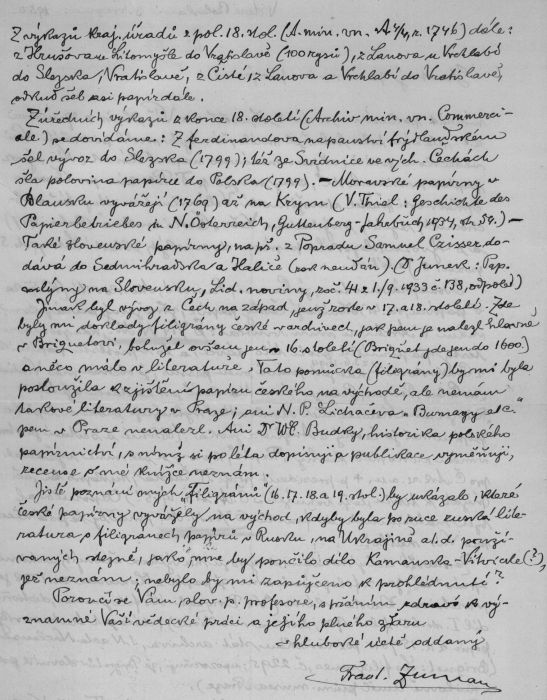 Z výkazů kraj. úřadů z pol. 18. stol. (A. min. vn. 1746) dále:
z Hrušovan, Litomyšle do Vratislavě (100 rysů), z Lanova u Vrchlabí
do Slezska, Vratislavě, z Čisté, z Lanova a Vrchlabí do Vratislavě,
odkud šel asi papír dále.
Z úředních výkazů z konce 18. století (Archiv min. vn. Commerci-
ale) se dovídáme: Z ferdinandova panství frýdlandském
šel vývoz do Slezska (1799); též ze Svídnice ve vých. Čechách
šla polovina papíru do Polska (1799). — Moravské papírny v
vyvážejí (1769) až na Krym (V. Thiel: Geschichte des
Papierbetriebes in N. Österreich, Guttenberg-Jahrbuch 1934, str. 54). —
Také slovenské papírny, na př. z Popradu Samuel Czisser do-
dává do Sedmihradska a Haliče (rok neudán). (Dr Junek: Pap.
mlýny na Slovensku, Lid. noviny, roč. 41 z 1./9. 1933 č. 438, odpol.)
Jinak byl vývoz z Čech na západ, jenž roste v 17. a 18. století. Zde
byly mi doklady filigrány české v archivech, jak jsem je nalezl hlavně
v Briquetovi, bohužel ovšem jen v 16. století (Briquet jde jen do 1600)
a něco málo v literatuře. Tato pomůcka (filigrány) by mi byla
posloužila k zjištění papíru českého na východě, ale nemám
takové literatury v Praze; ani N. P. Lichačeva „Bumagy
jsem v Praze nenalezl. Ani Dr Wł. Budky, historika polského
papírnictví, s nímž si po léta dopisuji a publikace vyměňuji,
recense o mé knížce neznám.
Jisté poznání oných „filigránů“ (16. 17. 18. a 19. stol.) by ukázalo, které
české papírny vyvážely na východ, kdyby byla po ruce ruská lite-
ratura o filigranech papírů v Rusku, na Ukrajině a t. d. použí-
vaných stejně, jako mne by poučilo dílo Kamanska-Vitvicke (?),
jež neznám; nebylo by mi zapůjčeno k prohlédnutí?
Poroučí se Vám, slov. p. profesore, s přáním zdraví k vý-
znamné Vaší vědecké práci a jejího plného zdaru
v hluboké úctě oddaný
Frant. Zuman